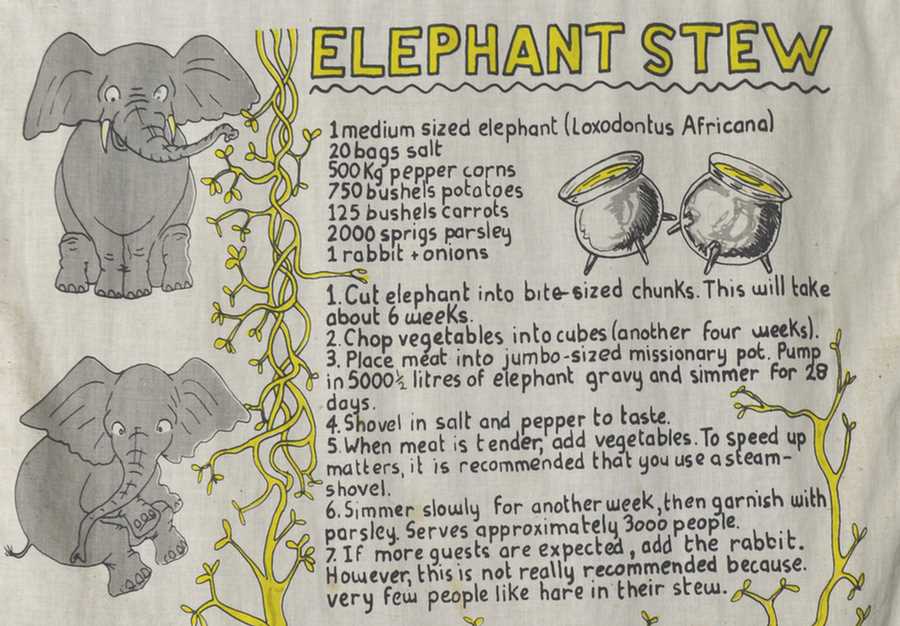 ELEPHANT STEW
1 medium sized elephant (Loxodontus Africana)
20 bags salt
500 Kg pepper corns
750 bushels potatoes
125 bushels carrots
2000 sprigs parsley
1 rabbit + onions
1. Cut elephant into bite-sized chunks. This will take
about 6 weeks.
2. Chop vegetables into cubes (another four weeks).
3. Place meat into jumbo-sized missionary pot. Pump
in 5000½ litres of elephant gravy and simmer for 28
days.
4. Shovel in salt and pepper to taste.
5. When meat is tender, add vegetables. To speed up
matters, it is recommended that you use a steam-
shovel.
6. Simmer slowly for another week, then garnish with
parsley. Serves approximately 3000 people.
7. If more guests are expected, add the rabbit.
However, this is not really recommended because.
very few people like hare in their stew.